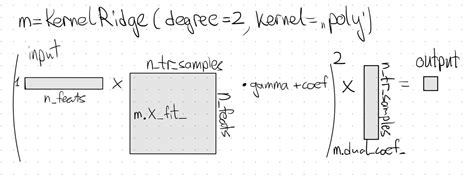 m=KernelRidge(degree=2, kernel=„poly”)
input
n_tr_samples
2
output
1
×
m.X_fit_
n_feats
· gamma + coef
×
n_tr_samples
=
n_feats
m.dual_coef_